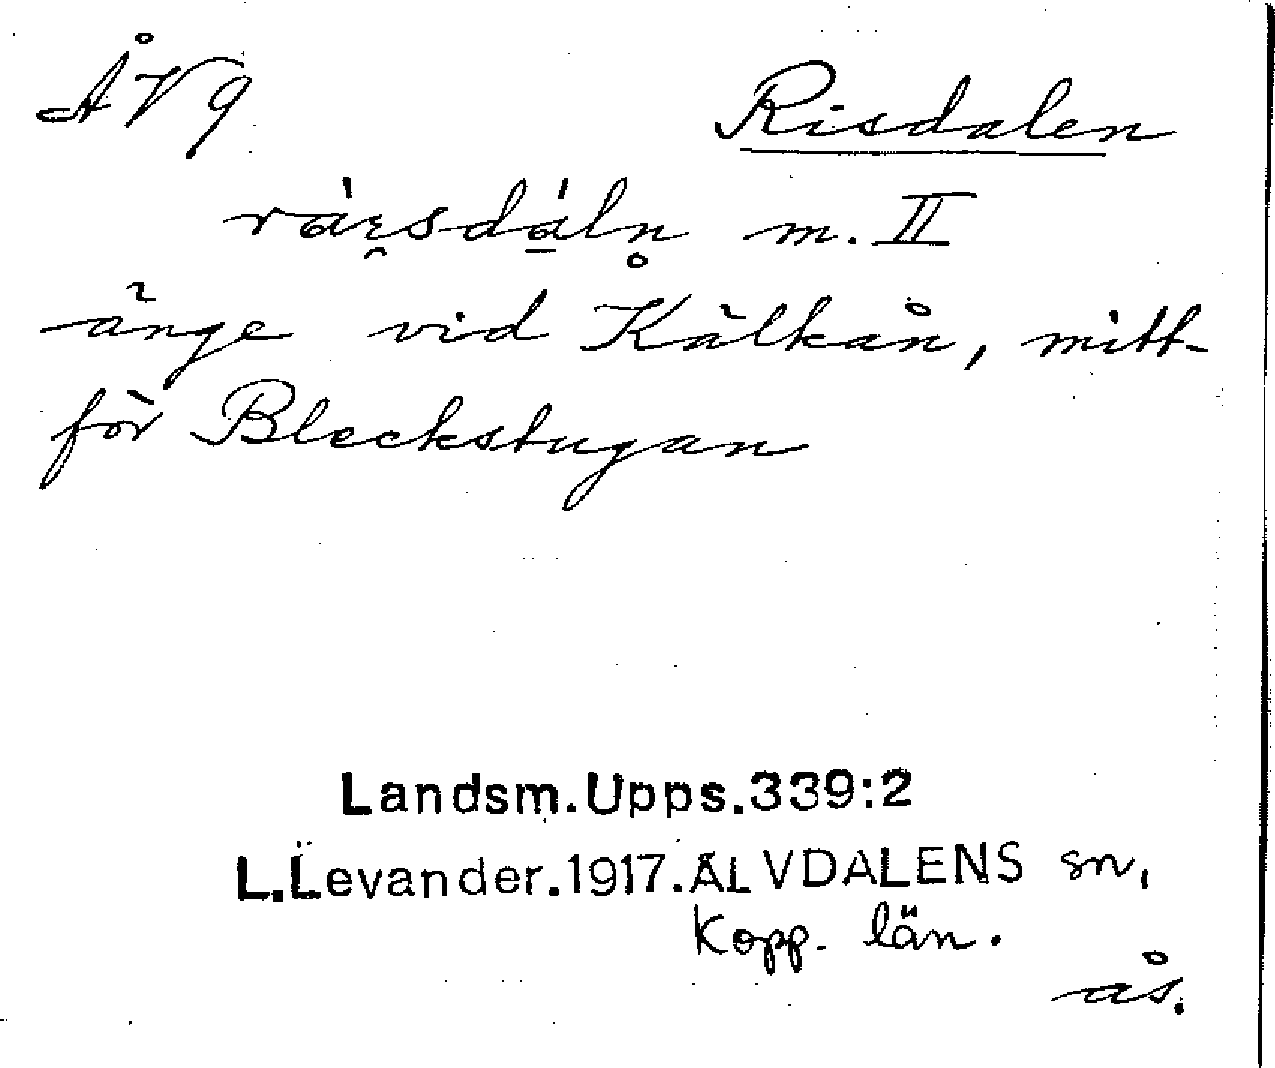 ÅV9
Risdalen
ráι̯sdá̱ln̥ m. II
änge vid Kälkån, mitt-
för Bleckstugan
Landsm.Upps.339:2
L.Levander.1917.ÄLVDALENS sn,
Kopp. län.
ås.